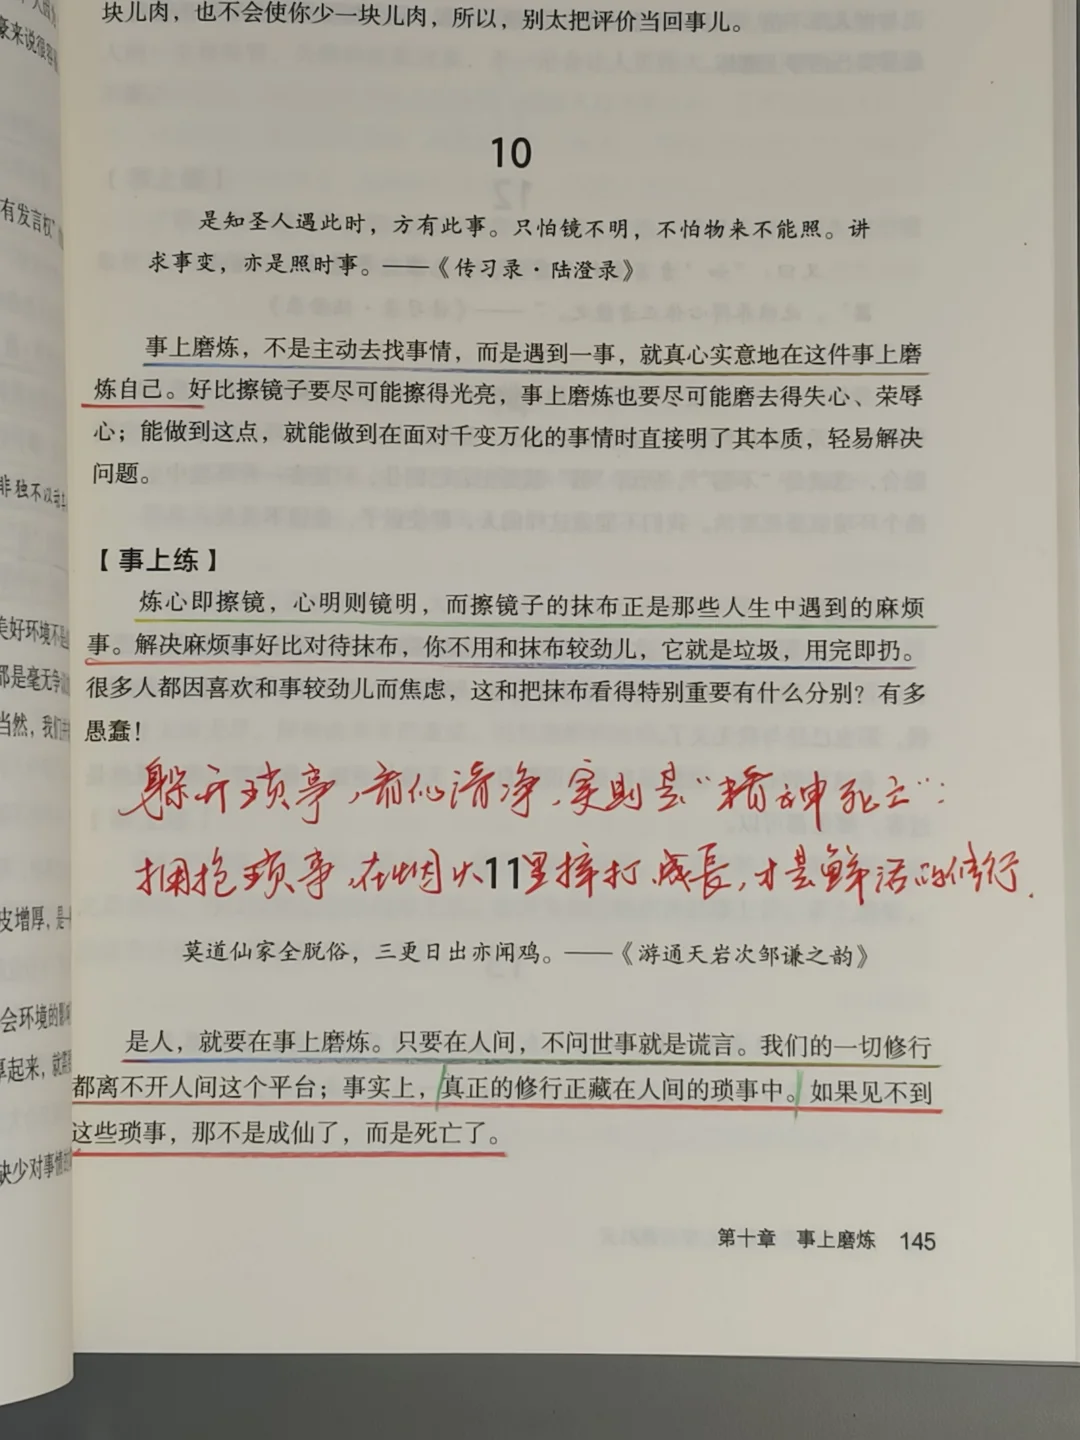 块儿肉，也不会使你少一块儿肉，所以，别太把评价当回事儿。
10
是知圣人遇此时，方有此事。只怕镜不明，不怕物来不能照。讲
求事变，亦是照时事。——《传习录·陆澄录》
事上磨炼，不是主动去找事情，而是遇到一事，就真心实意地在这件事上磨
炼自己。好比擦镜子要尽可能擦得光亮，事上磨炼也要尽可能磨去得失心、荣辱
心；能做到这点，就能做到在面对千变万化的事情时直接明了其本质，轻易解决
问题。
【事上练】
炼心即擦镜，心明则镜明，而擦镜子的抹布正是那些人生中遇到的麻烦
事。解决麻烦事好比对待抹布，你不用和抹布较劲儿，它就是垃圾，用完即扔。
很多人都因喜欢和事较劲儿而焦虑，这和把抹布看得特别重要有什么分别？有多
愚蠢！
躲开琐事，看似清净，实则是“精神死亡”：
拥抱琐事，在烟火里摔打、成長，才是鲜活的修行.
11
莫道仙家全脱俗，三更日出亦闻鸡。——《游通天岩次邹谦之韵》
是人，就要在事上磨炼。只要在人间，不问世事就是谎言。我们的一切修行
都离不开人间这个平台；事实上，真正的修行正藏在人间的琐事中。如果见不到
这些琐事，那不是成仙了，而是死亡了。
第十章 事上磨炼 145
豪来说很容
有发言权
非独不以动
美好环境不是
那是毫无争
当然，我们
皮增厚，是
会环境的影
厚起来，就
缺少对事情